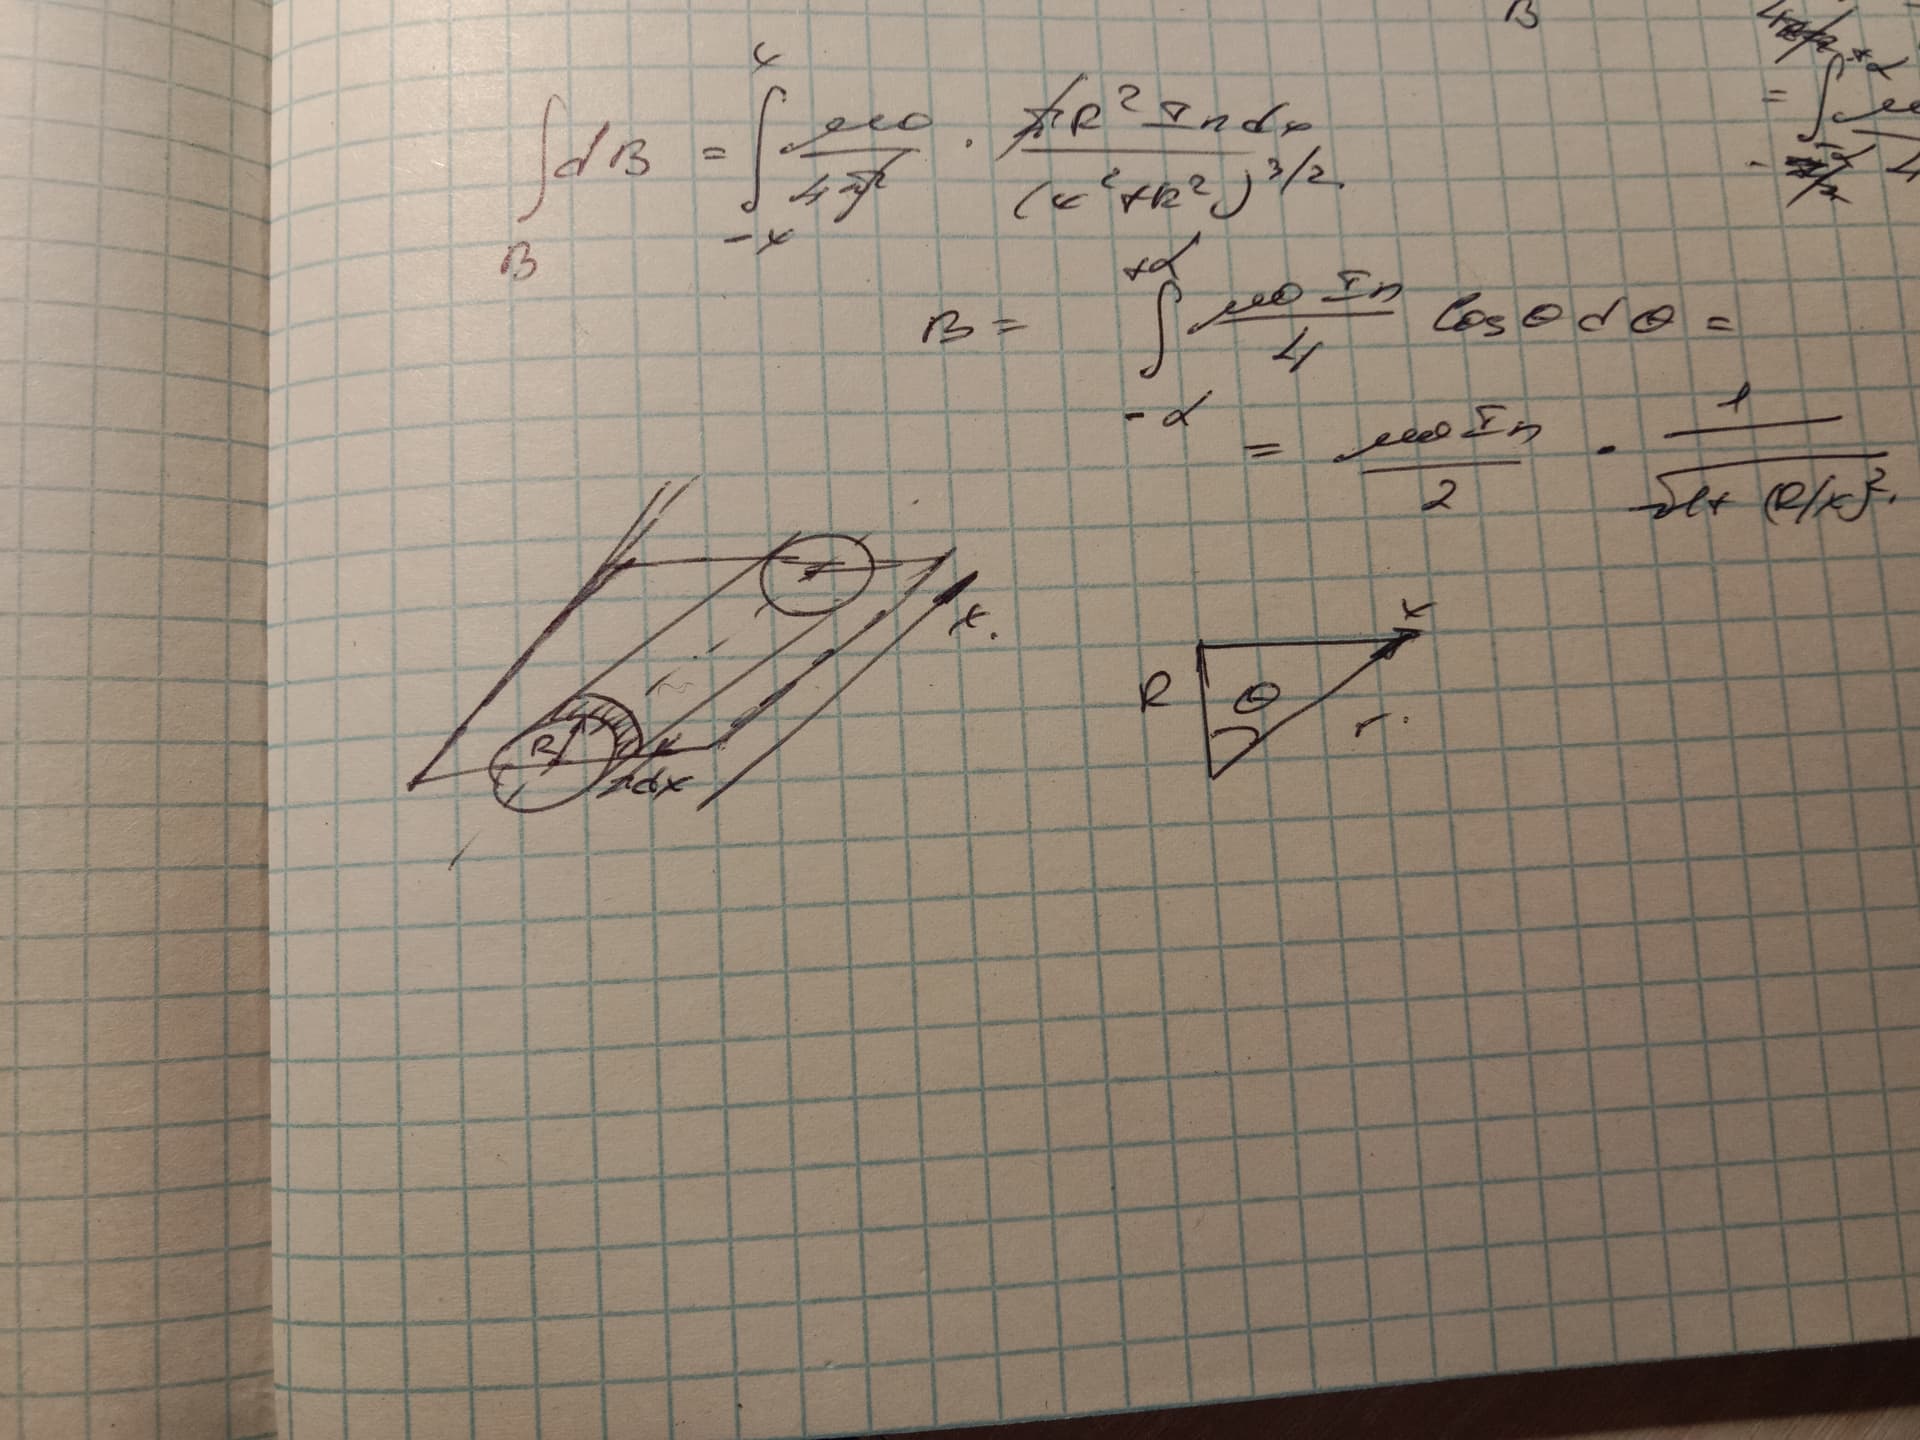 B
∫_B dB = ∫_{-x}^{x} μ0/4π · πR² I n dx / (x²+R²)^{3/2}.
B = ∫_{-α}^{+α} μ0 I n / 4 cos θ d θ =
= μ0 I n / 2 · 1 / √(1+ (R/x)².
x.
R
dx
x
R θ
r.